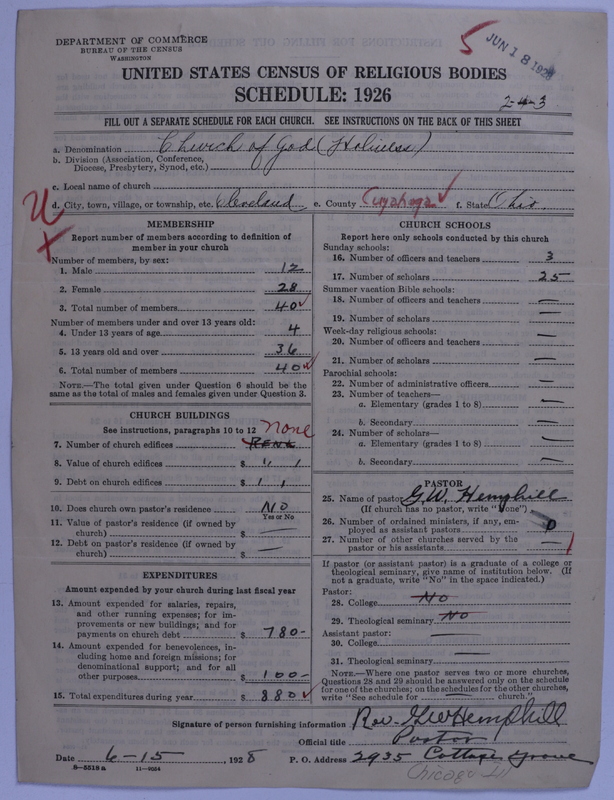 DEPARTMENT OF COMMERCE
BUREAU OF THE CENSUS
WASHINGTON
5
JUN 18 1928
UNITED STATES CENSUS OF RELIGIOUS BODIES
SCHEDULE: 1926
2-4-3
FILL OUT A SEPARATE SCHEDULE FOR EACH CHURCH. SEE INSTRUCTIONS ON THE BACK OF THIS SHEET
a. Denomination Church of God (Holiness)
b. Division (Association, Conference,
Diocese, Presbytery, Synod, etc.)
c. Local name of church
d. City, town, village, or township, etc. Cleveland e. County Cuyahoga f. State Ohio
MEMBERSHIP
Report number of members according to definition of
member in your church
Number of members, by sex:
1. Male 12
2. Female 28
3. Total number of members 40
Number of members under and over 13 years old:
4. Under 13 years of age 4
5. 13 years old and over 36
6. Total number of members 40
NOTE.—The total given under Question 6 should be the
same as the total of males and females given under Question 3.
CHURCH BUILDINGS
See instructions, paragraphs 10 to 12 none
7. Number of church edifices Rent
8. Value of church edifices $ " "
9. Debt on church edifices $ " "
10. Does church own pastor's residence No
Yes or No
11. Value of pastor's residence (if owned by
church) $ —
12. Debt on pastor's residence (if owned by
church) $ —
EXPENDITURES
Amount expended by your church during last fiscal year
13. Amount expended for salaries, repairs,
and other running expenses; for im-
provements or new buildings; and for
payments on church debt $ 780-
14. Amount expended for benevolences, in-
cluding home and foreign missions; for
denominational support; and for all
other purposes $ 100-
15. Total expenditures during year $ 880
CHURCH SCHOOLS
Report here only schools conducted by this church
Sunday schools:
16. Number of officers and teachers 3
17. Number of scholars 25
Summer vacation Bible schools:
18. Number of officers and teachers —
19. Number of scholars —
Week-day religious schools:
20. Number of officers and teachers —
21. Number of scholars —
Parochial schools:
22. Number of administrative officers —
23. Number of teachers—
a. Elementary (grades 1 to 8) —
b. Secondary —
24. Number of scholars—
a. Elementary (grades 1 to 8) —
b. Secondary —
PASTOR
25. Name of pastor G.W. Hemphill
(If church has no pastor, write "none")
26. Number of ordained ministers, if any, em-
ployed as assistant pastors 0
27. Number of other churches served by the
pastor or his assistants — 1
If pastor (or assistant pastor) is a graduate of a college or
theological seminary, give name of institution below. (If
not a graduate, write "No" in the space indicated.)
Pastor:
28. College No
29. Theological seminary No
Assistant pastor:
30. College —
31. Theological seminary —
NOTE.—Where one pastor serves two or more churches,
Questions 28 and 29 should be answered only on the schedule
for one of the churches; on the schedules for the other churches,
write "See schedule for — church."
Signature of person furnishing information Rev. G W Hemphill
Official title Pastor
Date 6-15, 1928 P. O. Address 2935 Cottage Grove
8-5518a 11-9024
Chicago Ill